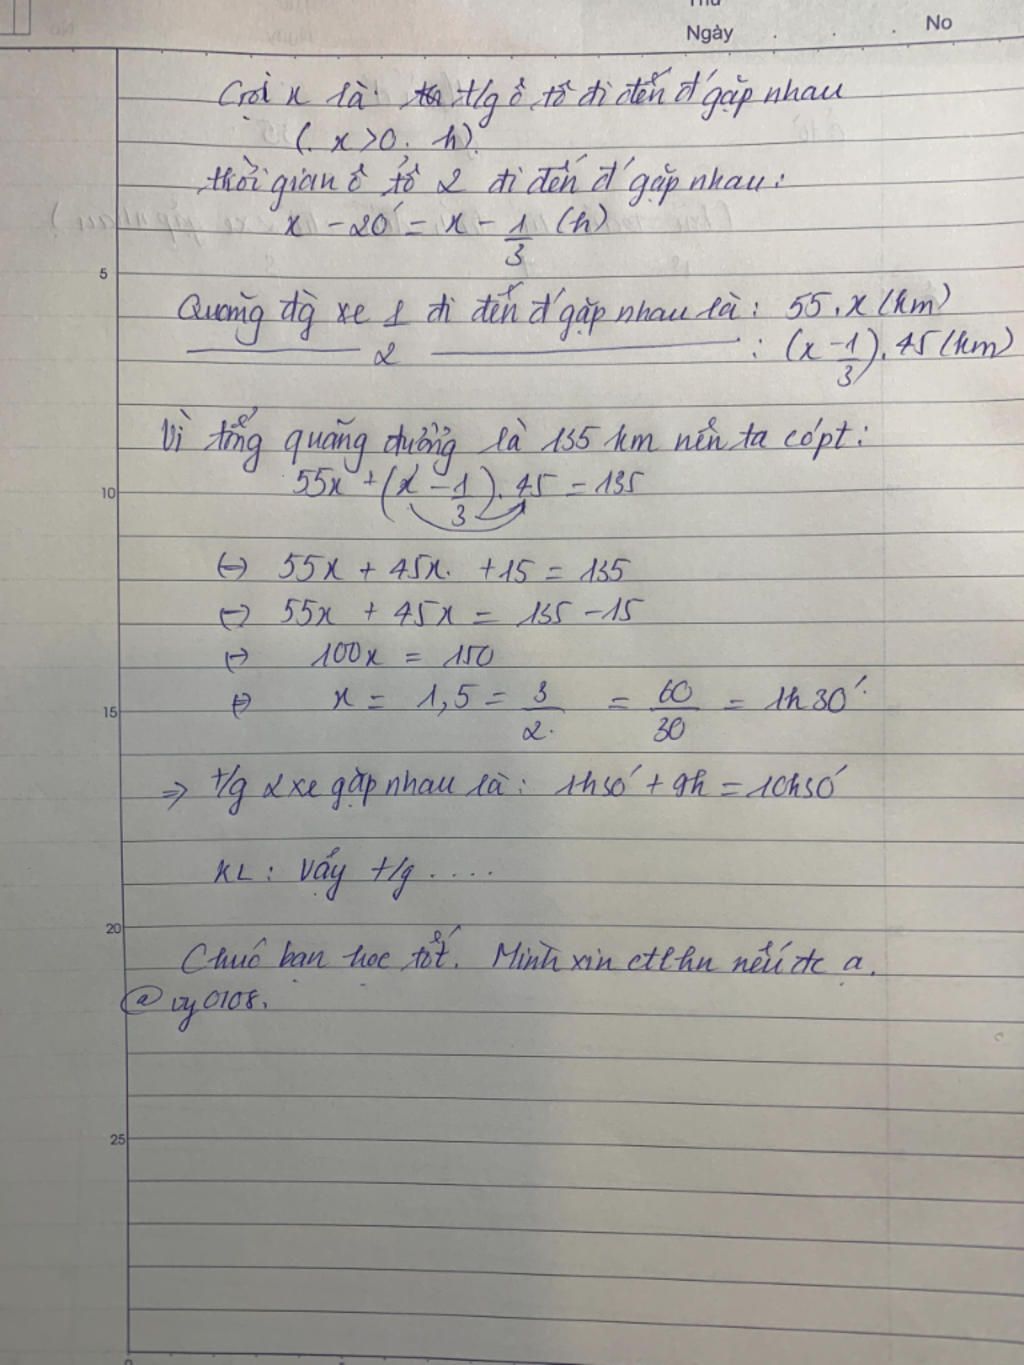 Thứ
Ngày . . . No
Gọi x là t/g ô tô đi đến đ' gặp nhau
(. x>0. h).
thời gian ô tô 2 đi đến đ' gặp nhau:
x - 20' = x - 1/3 (h)
5
Quãng đg xe 1 đi đến đ' gặp nhau là: 55.x (km)
——— 2 ——— : (x - 1/3). 45 (km)
Vì tổng quãng đường là 135 km nên ta có pt:
10 55x + (x - 1/3). 45 = 135
(-) 55x + 45x. + 15 = 135
(-) 55x + 45x = 135 - 15
(-) 100x = 150
15 x = 1,5 = 3/2. = 60/30 = 1h30'.
=> t/g 2 xe gặp nhau là: 1h30' + 9h = 10h30'
KL: Vậy t/g ....
20
Chúc bạn học tốt. Mình xin ctlhn nếu đc ạ.
@vy0108.
25